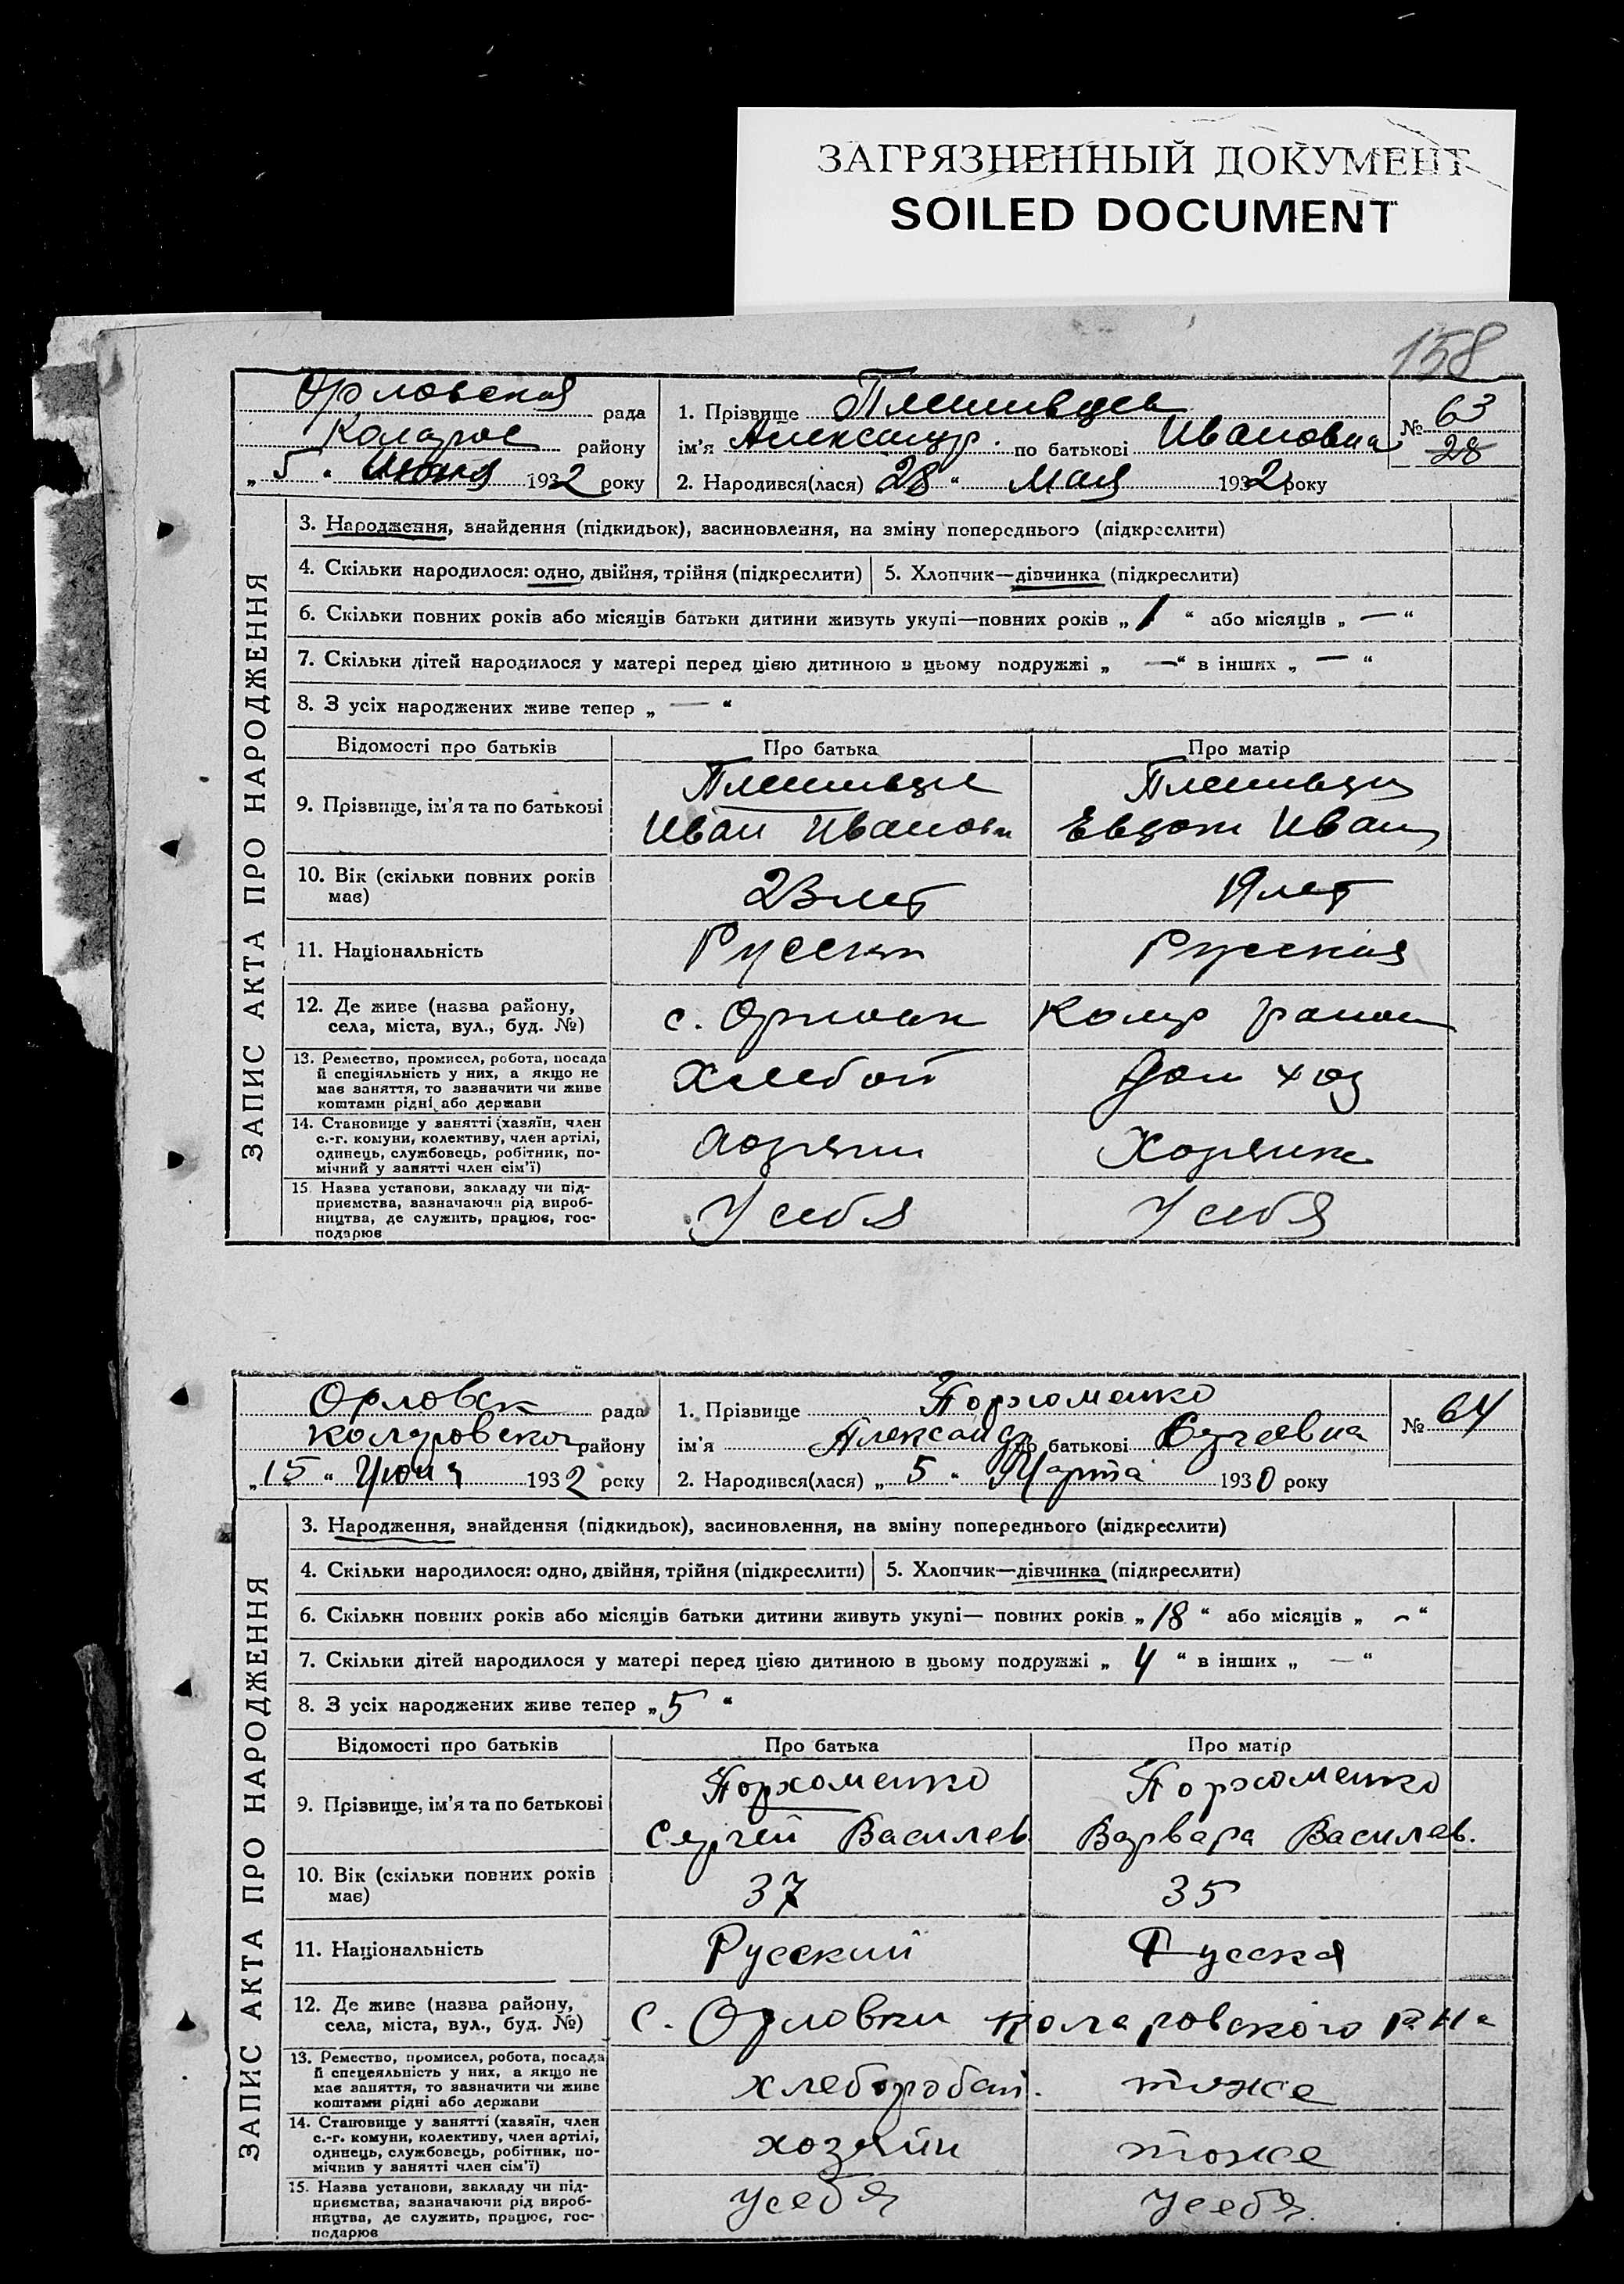 ЗАГРЯЗНЕННЫЙ ДОКУМЕНТ
SOILED DOCUMENT
158
Орловская рада
району
„ 5 “ Июня 1932 року
1. Прізвище
ім'я Александр. по батькові Ивановна
2. Народився(лася) 28 “ Мая 1932 року
№ 63
28
ЗАПИС АКТА ПРО НАРОДЖЕННЯ
3. Народження, знайдення (підкидьок), засиновлення, на зміну попереднього (підкреслити)
4. Скільки народилося: одно, двійня, трійня (підкреслити)
5. Хлопчик—дівчинка (підкреслити)
6. Скільки повних років або місяців батьки дитини живуть укупі—повних років „ 1 “ або місяців „ — “
7. Скільки дітей народилося у матері перед цією дитиною в цьому подружжі „ — “ в інших „ — “
8. З усіх народжених живе тепер „ — “
Відомості про батьків
Про батька
Про матір
9. Прізвище, ім'я та по батькові
Иван
Иван
10. Вік (скільки повних років
має)
23 лет
19 лет
11. Національність
Русская
12. Де живе (назва району,
села, міста, вул., буд. №)
с.
13. Ремество, промисел, робота, посада
й спеціяльність у них, а якщо не
має заняття, то зазначити чи живе
коштами рідні або держави
Дом хоз
14. Становище у занятті (хазяїн, член
с.-г. комуни, колективу, член артілі,
одинець, службовець, робітник, по-
мічний у занятті член сім'ї)
15. Назва установи, закладу чи під-
приємства, зазначаючи рід вироб-
ництва, де служить, працює, гос-
подарює
У себя
У себя
Орловск рада
району
„ 15 “ Июня 1932 року
1. Прізвище Порхоменко
ім'я Александр по батькові
2. Народився(лася) „ 5 “ Марта 1930 року
№ 64
ЗАПИС АКТА ПРО НАРОДЖЕННЯ
3. Народження, знайдення (підкидьок), засиновлення, на зміну попереднього (підкреслити)
4. Скільки народилося: одно, двійня, трійня (підкреслити)
5. Хлопчик—дівчинка (підкреслити)
6. Скільки повних років або місяців батьки дитини живуть укупі— повних років „ 18 “ або місяців „ - “
7. Скільки дітей народилося у матері перед цією дитиною в цьому подружжі „ 4 “ в інших „ — “
8. З усіх народжених живе тепер „ 5 “
Відомості про батьків
Про батька
Про матір
9. Прізвище, ім'я та по батькові
Порхоменко
Сергей Василев.
Порхоменко
Варвара Василев.
10. Вік (скільки повних років
має)
37
35
11. Національність
Русский
Русска
12. Де живе (назва району,
села, міста, вул., буд. №)
с. Орловки Коларовского р-на
13. Ремество, промисел, робота, посада
й спецеяльність у них, а якщо не
має заняття, то зазначити чи живе
коштами рідні або держави
тоже
14. Становище у занятті (хазяїн, член
с.-г. комуни, колективу, член артілі,
одинець, службовець, робітник, по-
мічнив у занятті член сім'ї)
хозяин
тоже
15. Назва установи, закладу чи під-
приємства, зазначаючи рід вироб-
ництва, де служить, працює, гос-
подарює
У себя
У себя.